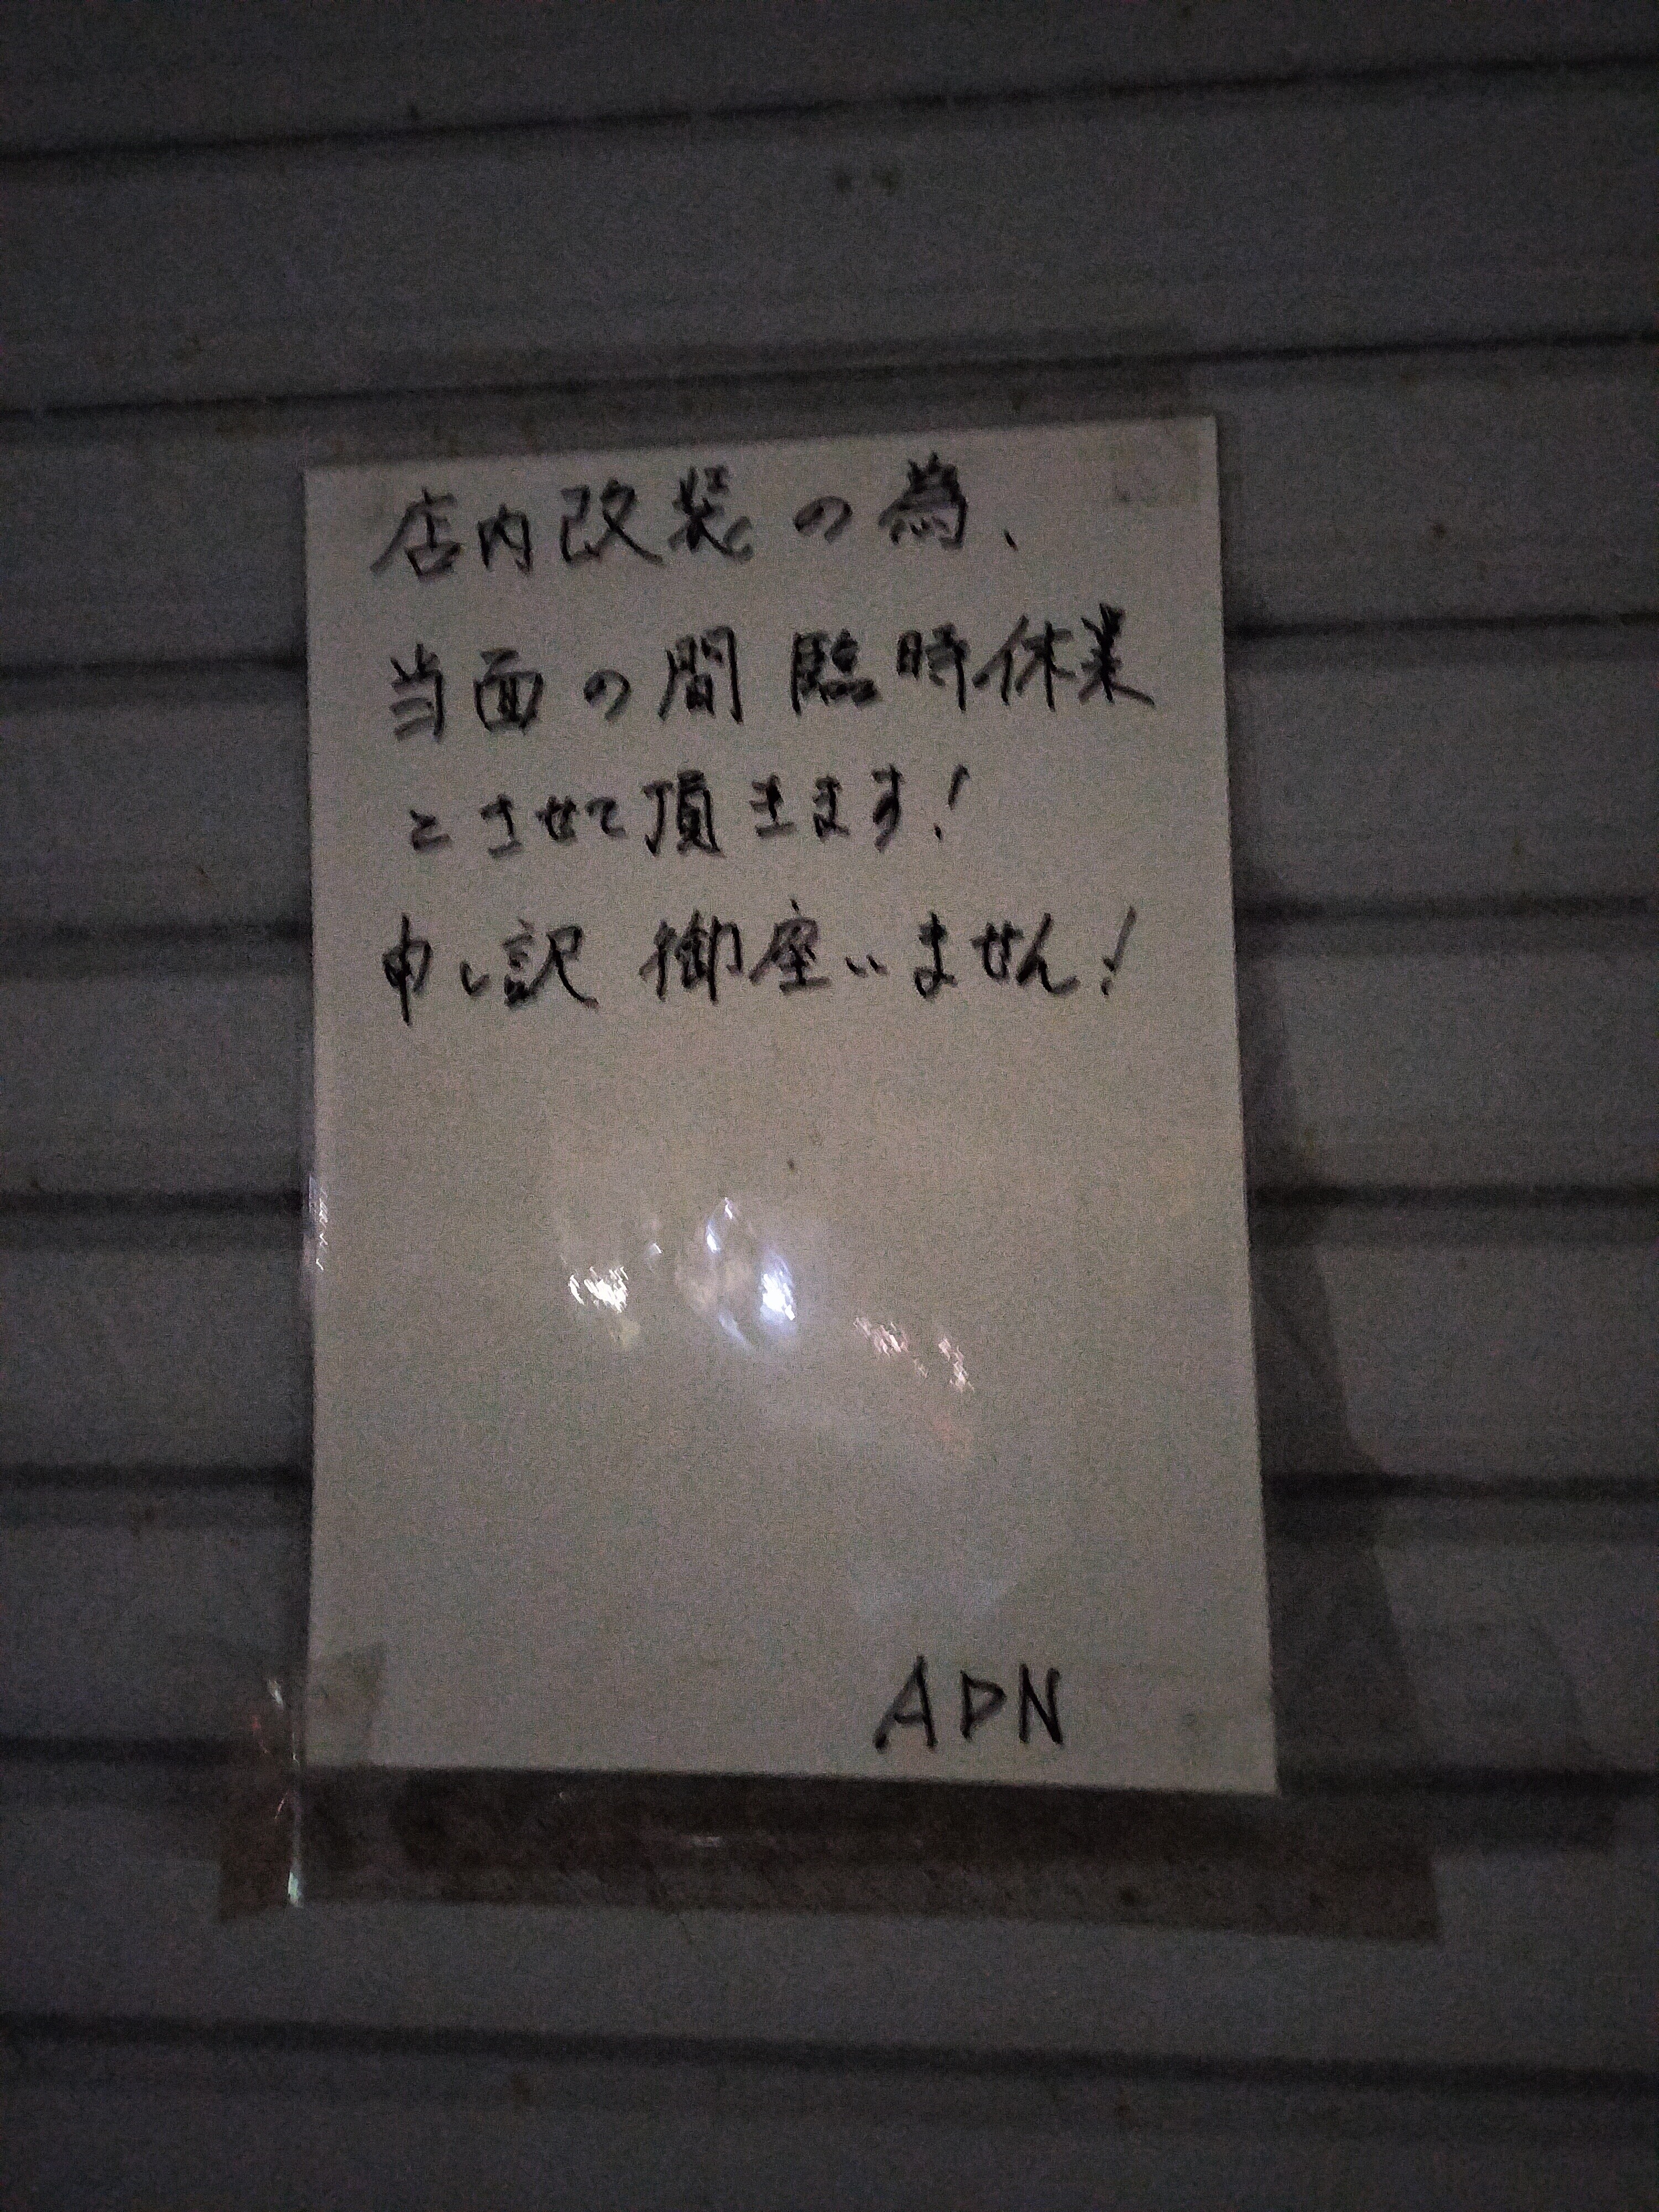 店内改装の為、
当面の間 臨時休業
とさせて頂きます!
申し訳 御座いません!
ADN